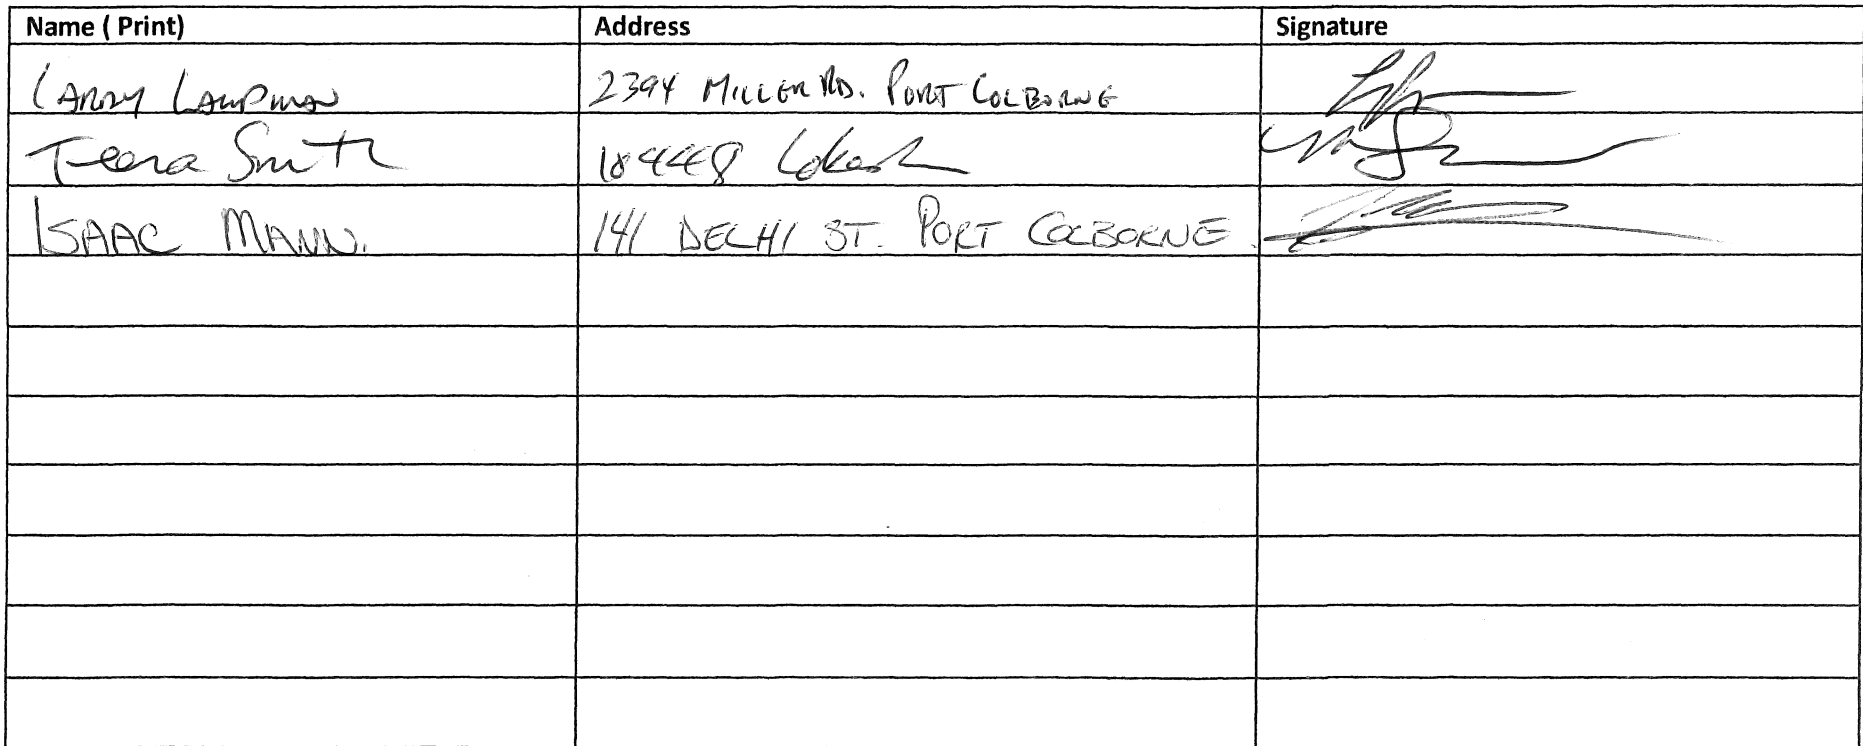 Name ( Print) Address Signature
LARRY LAMPMAN 2394 MILLER RD. PORT COLBORNE
Teena Smith
ISAAC MANN. 141 DELHI ST. PORT COLBORNE.